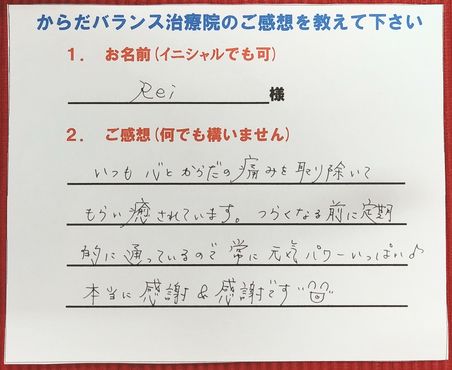 からだバランス治療院のご感想を教えて下さい
1. お名前(イニシャルでも可)
Rei 様
2. ご感想(何でも構いません)
いつも心とからだの痛みを取り除いて
もらい癒されています。つらくなる前に定期
的に通っているので常に元気パワーいっぱい♪
本当に感謝&感謝です